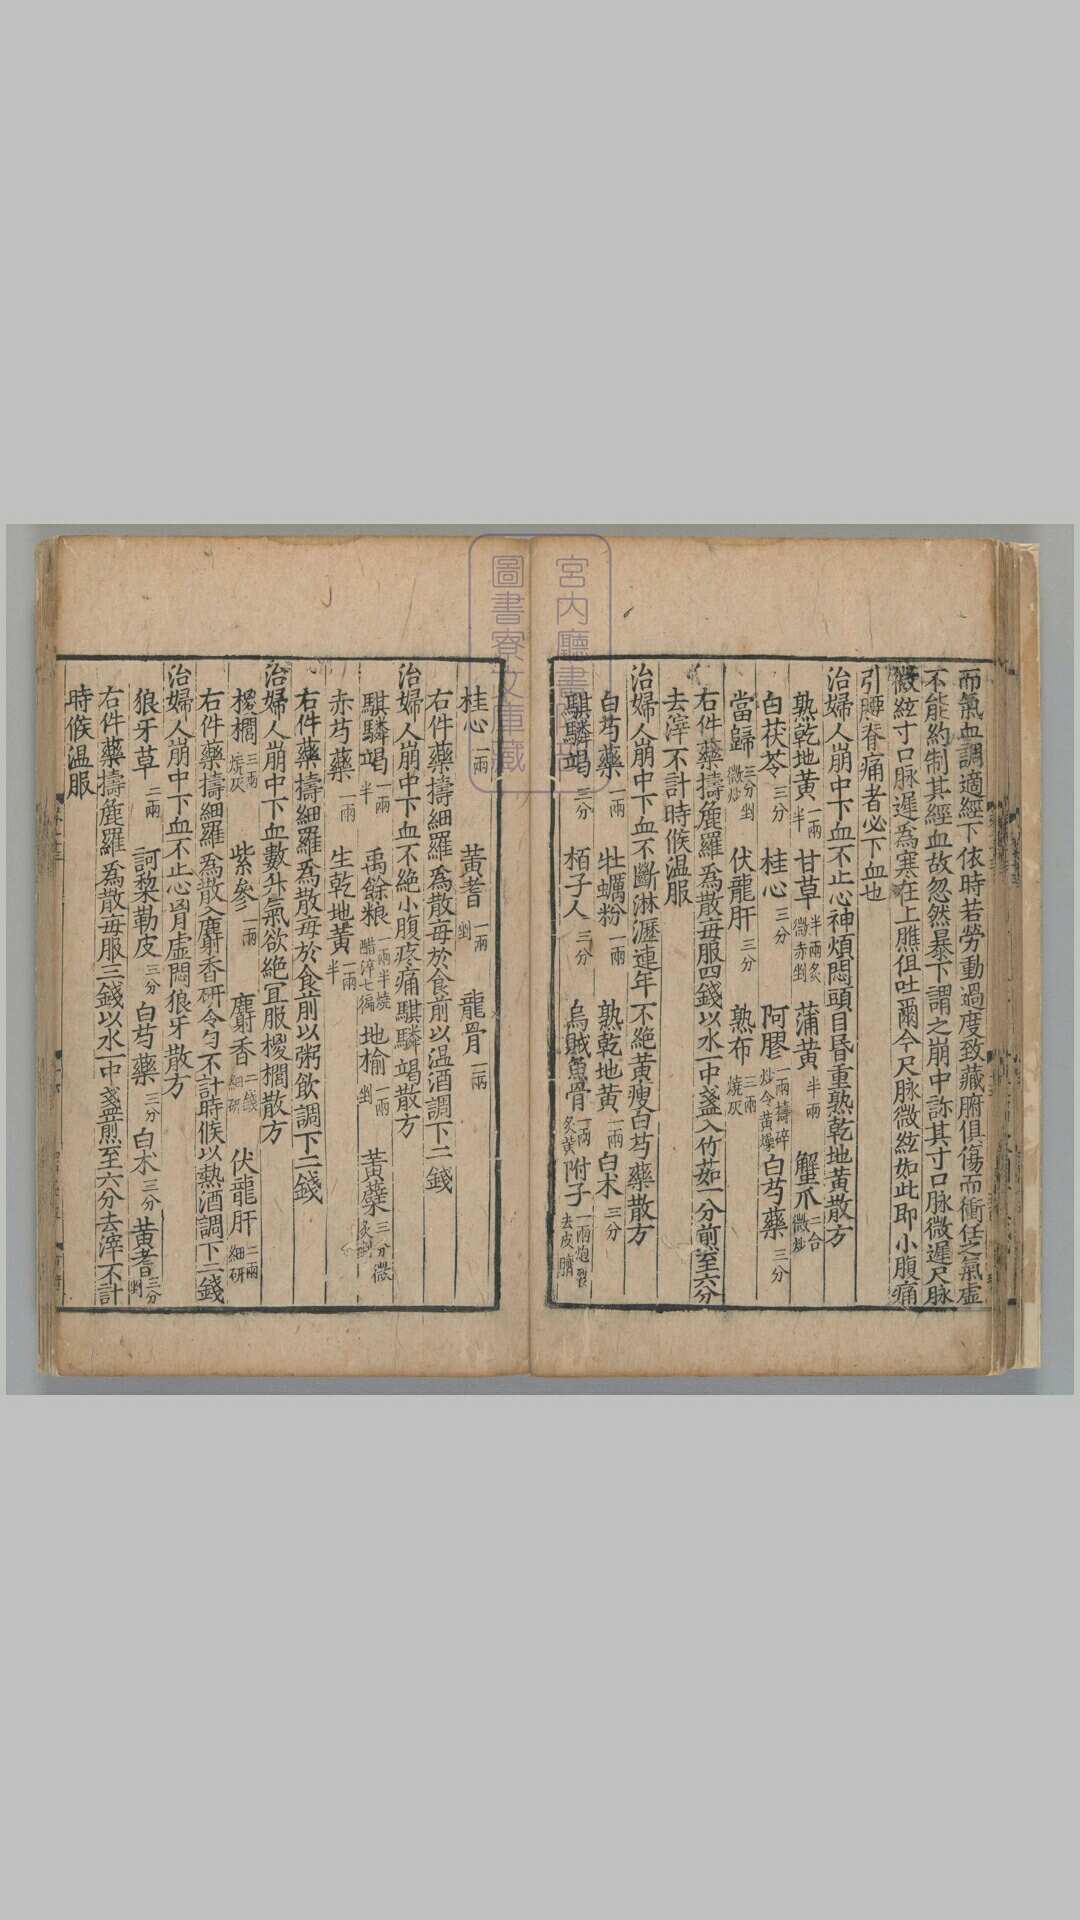 而氣血調適經下依時若勞動過度致藏腑俱傷而衝任之氣虛
不能約制其經血故忽然暴下謂之崩中診其寸口脉微遲尺脉
微絃寸口脉遲爲寒在上膲但吐爾今尺脉微絃如此即小腹痛
引腰脊痛者必下血也
治婦人崩中下血不止心神煩悶頭目昏重熟乾地黃散方
熟乾地黃一兩半 甘草半兩炙微赤剉 蒲黃半兩 蟹爪二合微炒
白茯苓三分 桂心三分 阿膠一兩擣碎炒令黃燥 白芍藥三分
當歸三分剉微炒 伏龍肝三分 熟布三兩燒灰
右件藥擣麁羅爲散每服四錢以水一中盞入竹茹一分煎至六分
去滓不計時候温服
治婦人崩中下血不斷淋瀝連年不絶黃瘦白芍藥散方
白芍藥一兩 牡蠣粉一兩 熟乾地黃一兩 白术三分
騏驎竭三分 栢子人三分 烏賊魚骨一兩炙黃 附子一兩炮裂去皮臍
桂心一兩 黃耆一兩剉 龍骨一兩
右件藥擣細羅爲散每於食前以温酒調下二錢
治婦人崩中下血不絶小腹疼痛騏驎竭散方
騏驎竭一兩半 禹餘粮一兩半燒醋淬七徧 地榆一兩剉 黃蘗三分微炙剉
赤芍藥一兩 生乾地黃一兩半
右件藥擣細羅爲散每於食前以粥飲調下二錢
治婦人崩中下血數升氣欲絶宜服椶櫚散方
椶櫚三兩燒灰 紫參一兩 麝香二錢細研 伏龍肝二兩細研
右件藥擣細羅爲散入麝香研令勻不計時候以熱酒調下二錢
治婦人崩中下血不止心胷虛悶狼牙散方
狼牙草二兩 訶棃勒皮三分 白芍藥三分 白术三分 黃耆三分剉
右件藥擣麁羅爲散每服三錢以水一中盞煎至六分去滓不計
時候温服
宮內廳書
圖書寮文庫藏